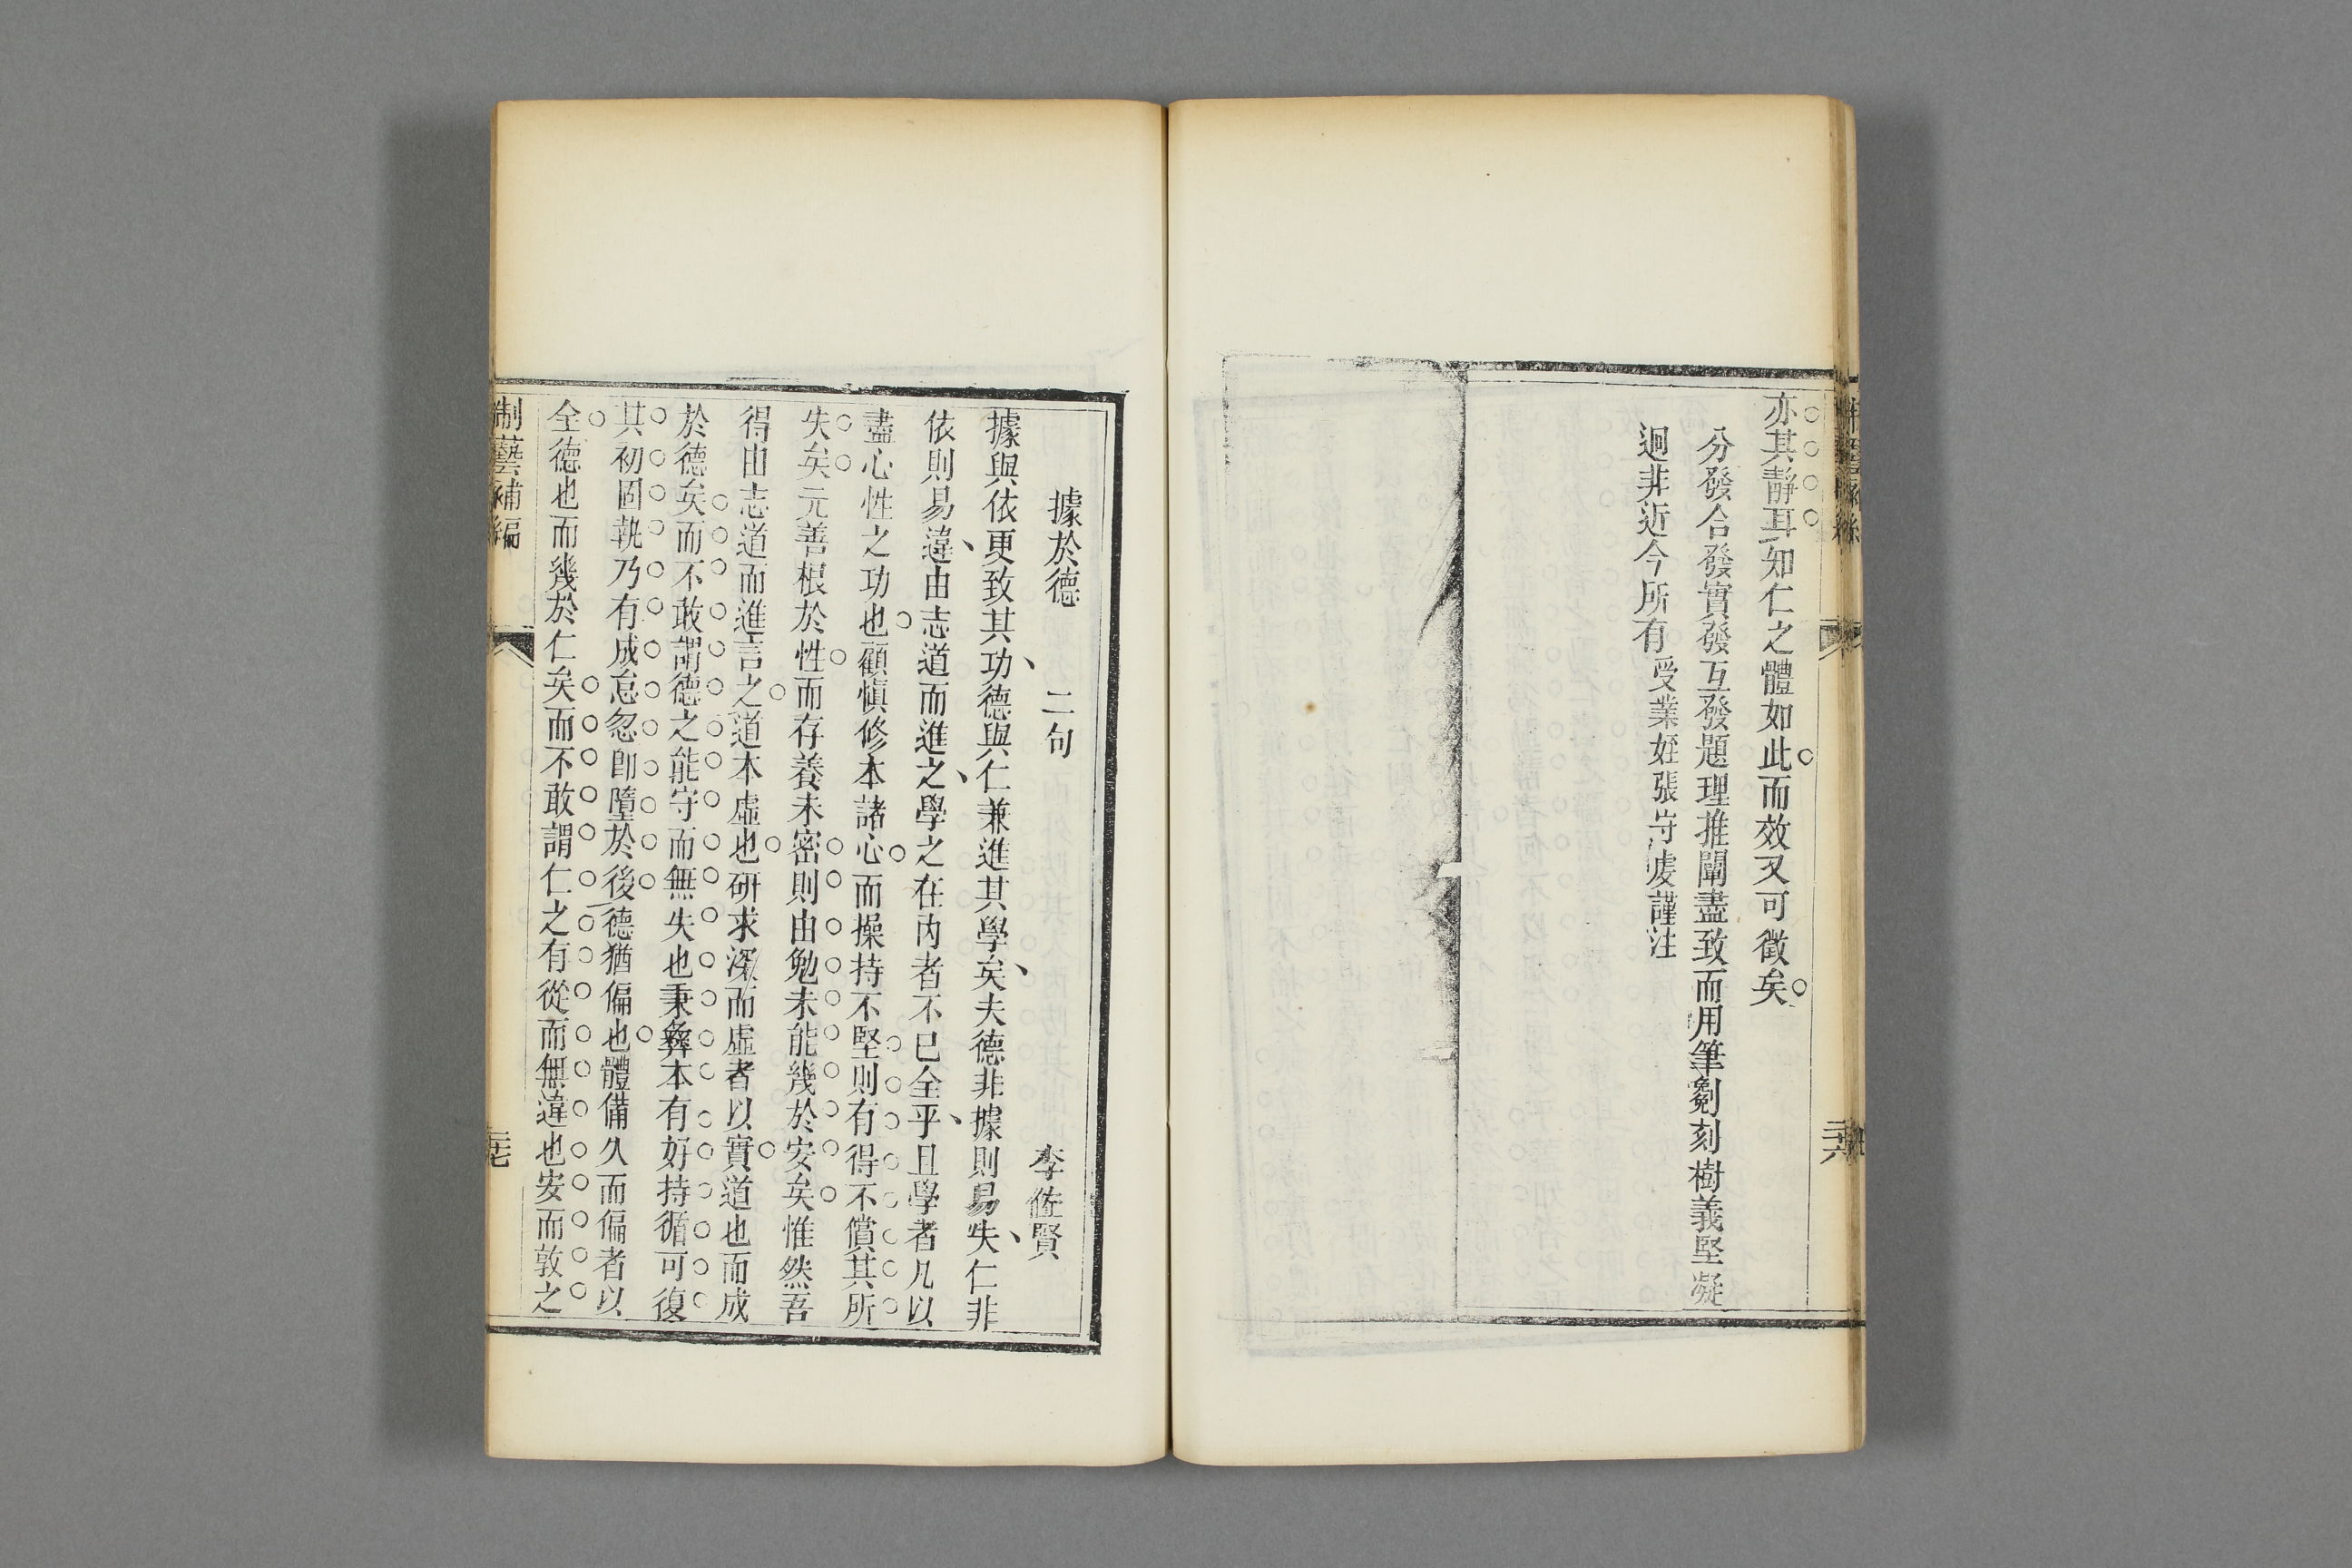 亦其靜耳知仁之體如此而效又可徵矣
分發合發實發互發題理推闡盡致而用筆劖刻樹義堅凝
迥非近今所有受業姪張守虔謹注
二十六
據於德　二句　李佐賢
據與依更致其功德與仁兼進其學矣夫德非據則易失仁非
依則易違由志道而進之學之在内者不已全乎且學者凡以
盡心性之功也顧愼修本諸心而操持不堅則有得不償其所
失矣元善根於性而存養未密則由勉未能幾於安矣惟然吾
得由志道而進言之道本虛也研求深而虛者以實道也而成
於德矣而不敢謂德之能守而無失也秉彝本有好持循可復
其初固執乃有成怠忽卽墮於後德猶偏也體備久而偏者以
全德也而幾於仁矣而不敢謂仁之有從而無違也安而敦之
制藝補編
二十七